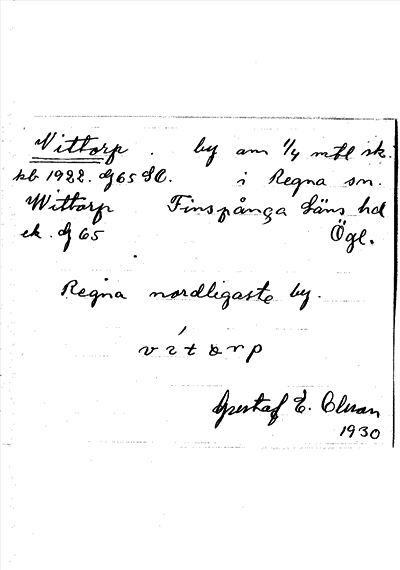 Vittorp . by om 1/4 mtl sk.
kb 1922. i Regna sn.
Wittorp Finspånga Läns hd
ek. 65 Ögl.
Regna nordligaste by.
v í t o r p
Gustaf E.
1930